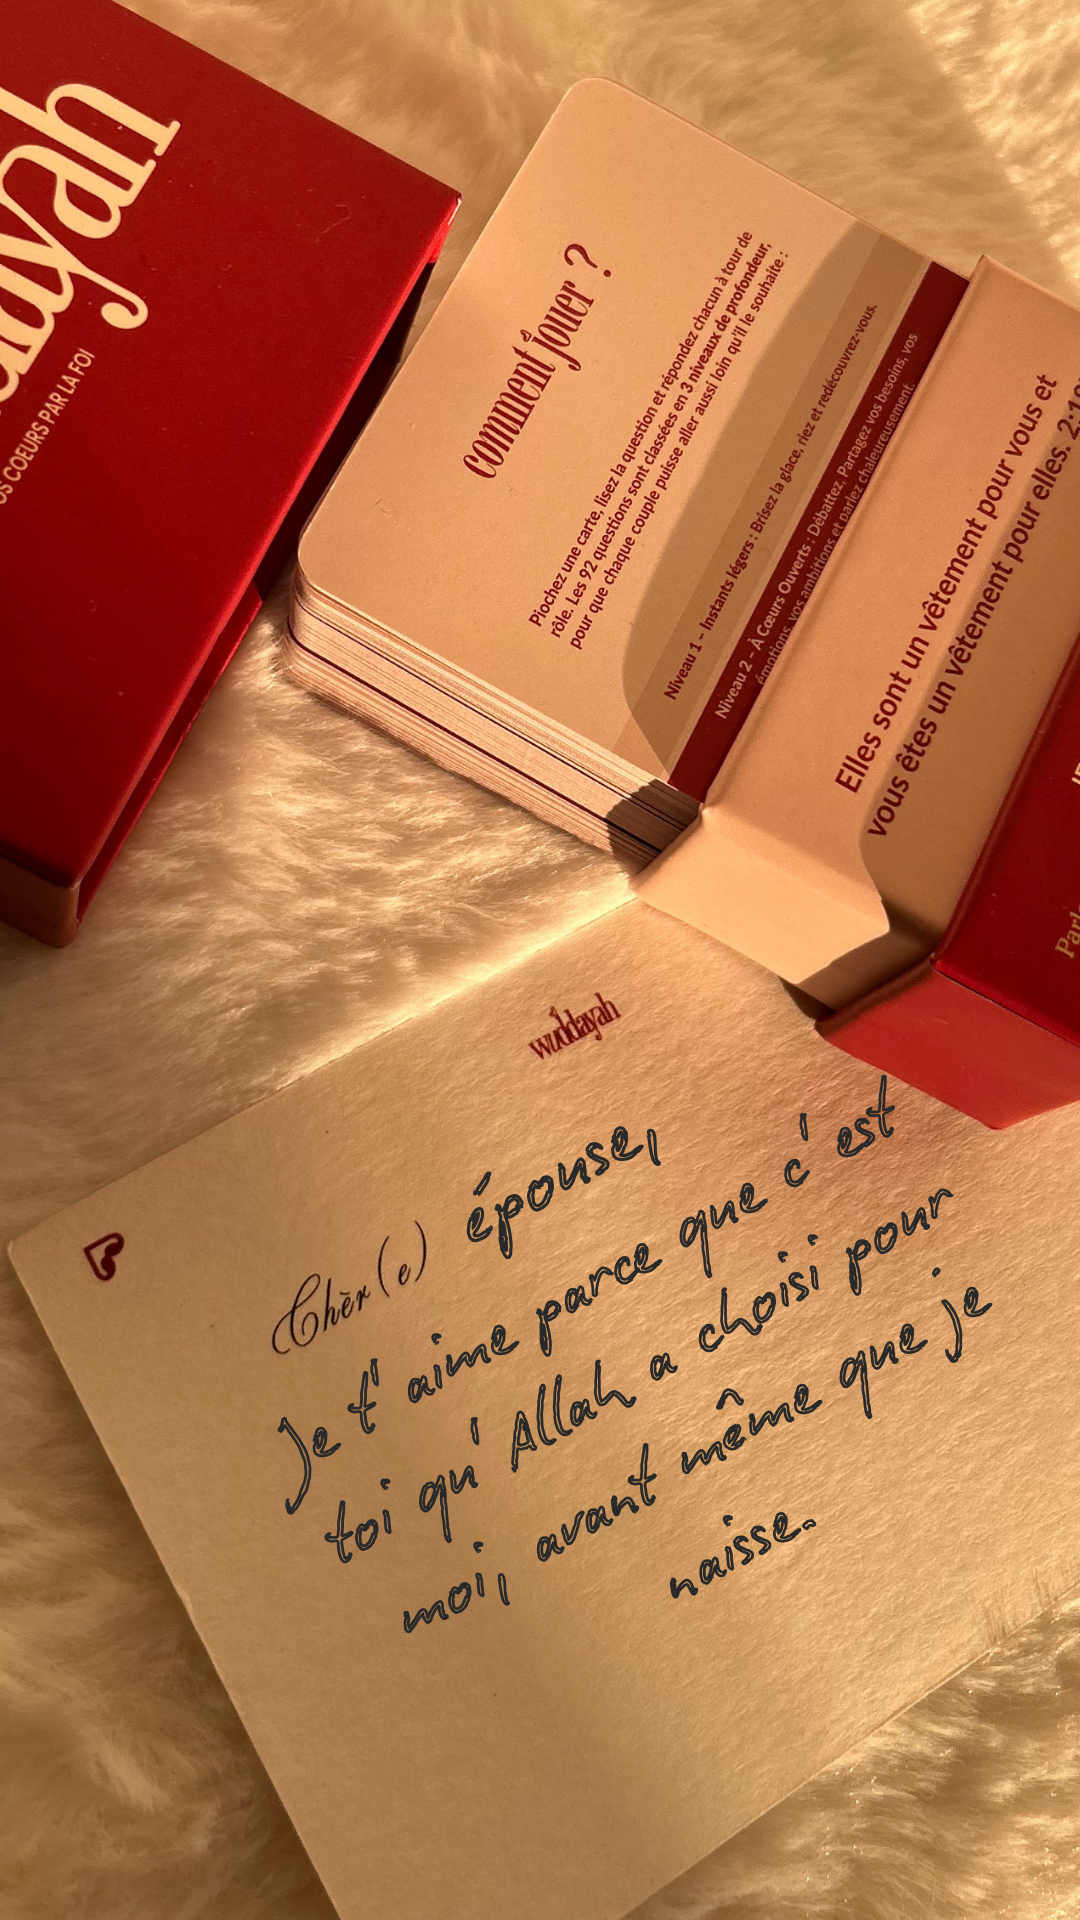 OS COEURS PAR LA FOI
comment jouer ?
Piochez une carte, lisez la question et répondez chacun à tour de
rôle. Les 92 questions sont classées en 3 niveaux de profondeur,
pour que chaque couple puisse aller aussi loin qu'il le souhaite :
Niveau 1 – Instants légers : Brisez la glace, riez et redécouvrez-vous.
Niveau 2 – À Cœurs Ouverts : Débattez, Partagez vos besoins, vos
émotions, vos ambitions et parlez chaleureusement.
Elles sont un vêtement pour vous et
vous êtes un vêtement pour elles.
wuddayah
Chèr(e) épouse,
Je t'aime parce que c'est
toi qu'Allah a choisi pour
moi, avant même que je
naisse.